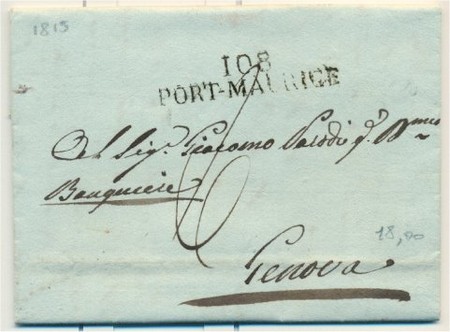 1815
108
PORT-MAURICE
Al Sig.r Giacomo Parodi q.
Banquiere
6
18,00
Genova